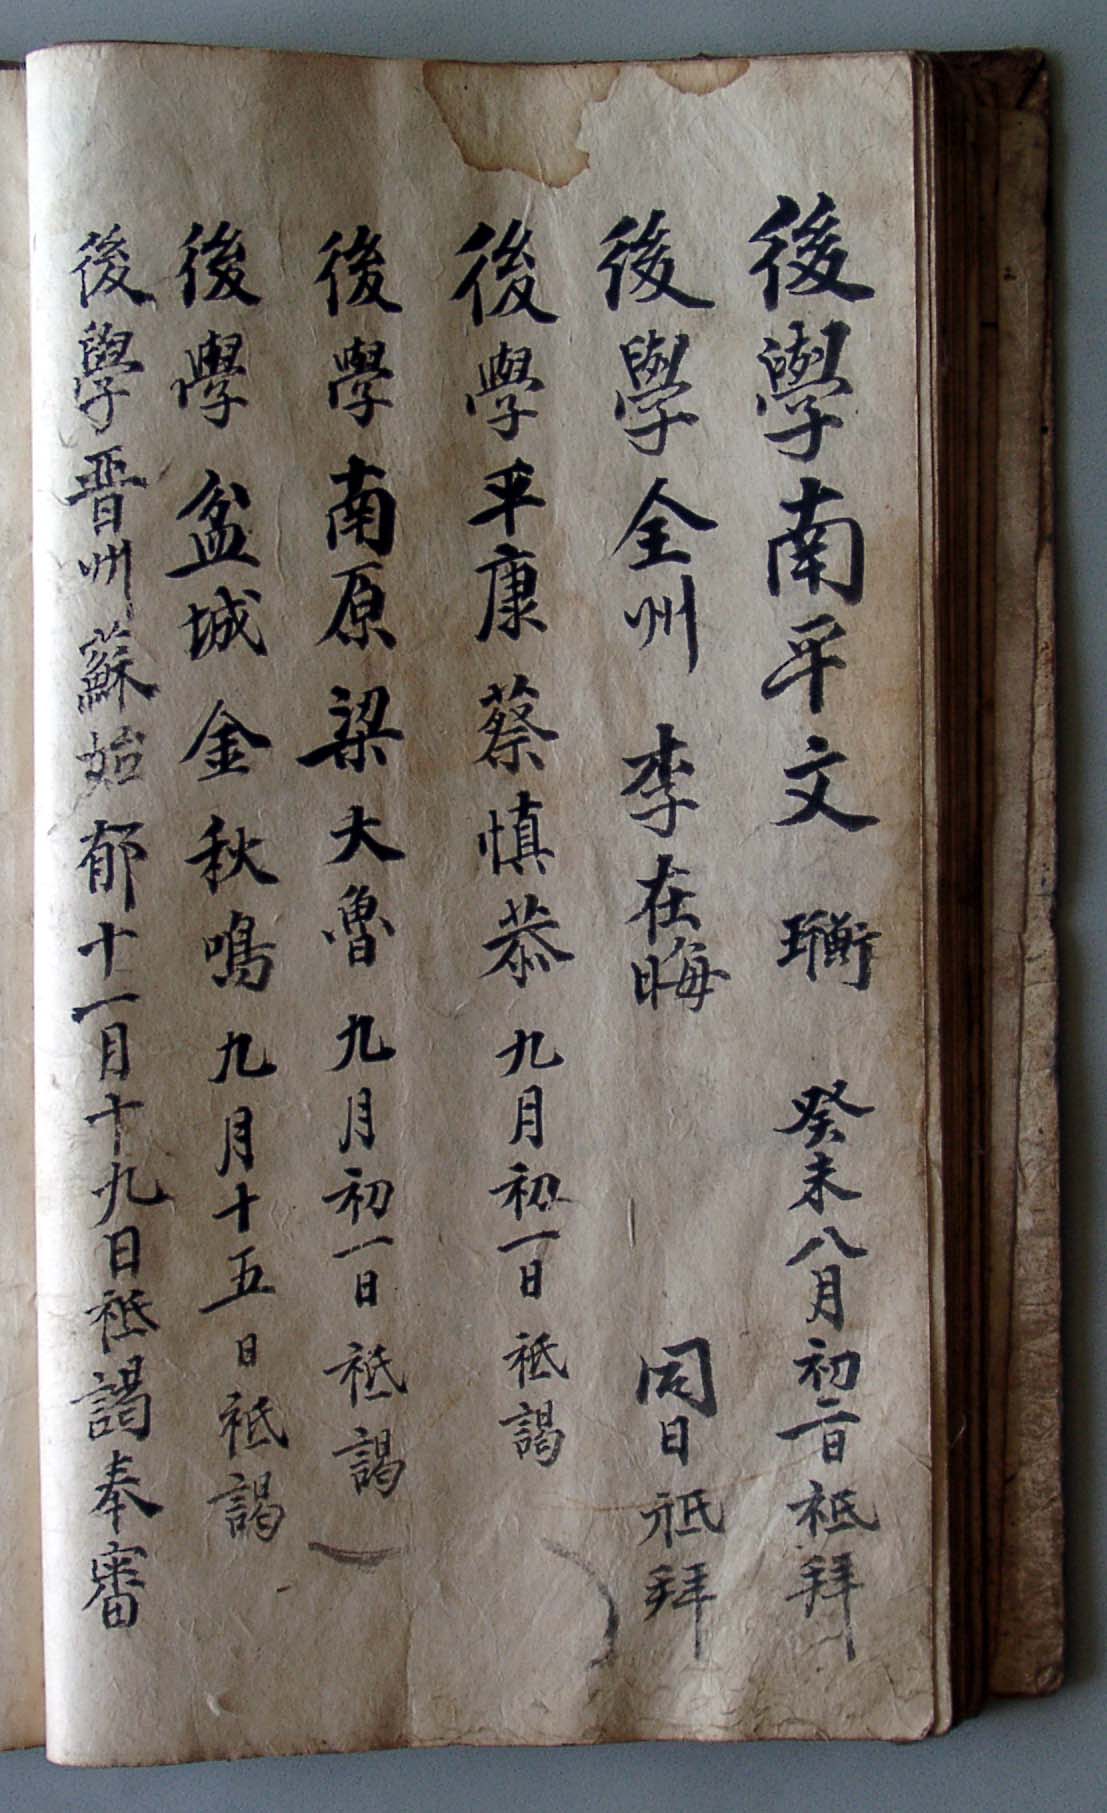 後學南平文 瑚 癸未八月初二日祗拜
後學全州 李在晦 同日祗拜
後學平康蔡愼恭九月初一日祗謁
後學南原梁大魯九月初一日祗謁
後學盆城金秋鳴九月十五日祗謁
後學晋州蘇始郁十一月十九日祗謁奉審